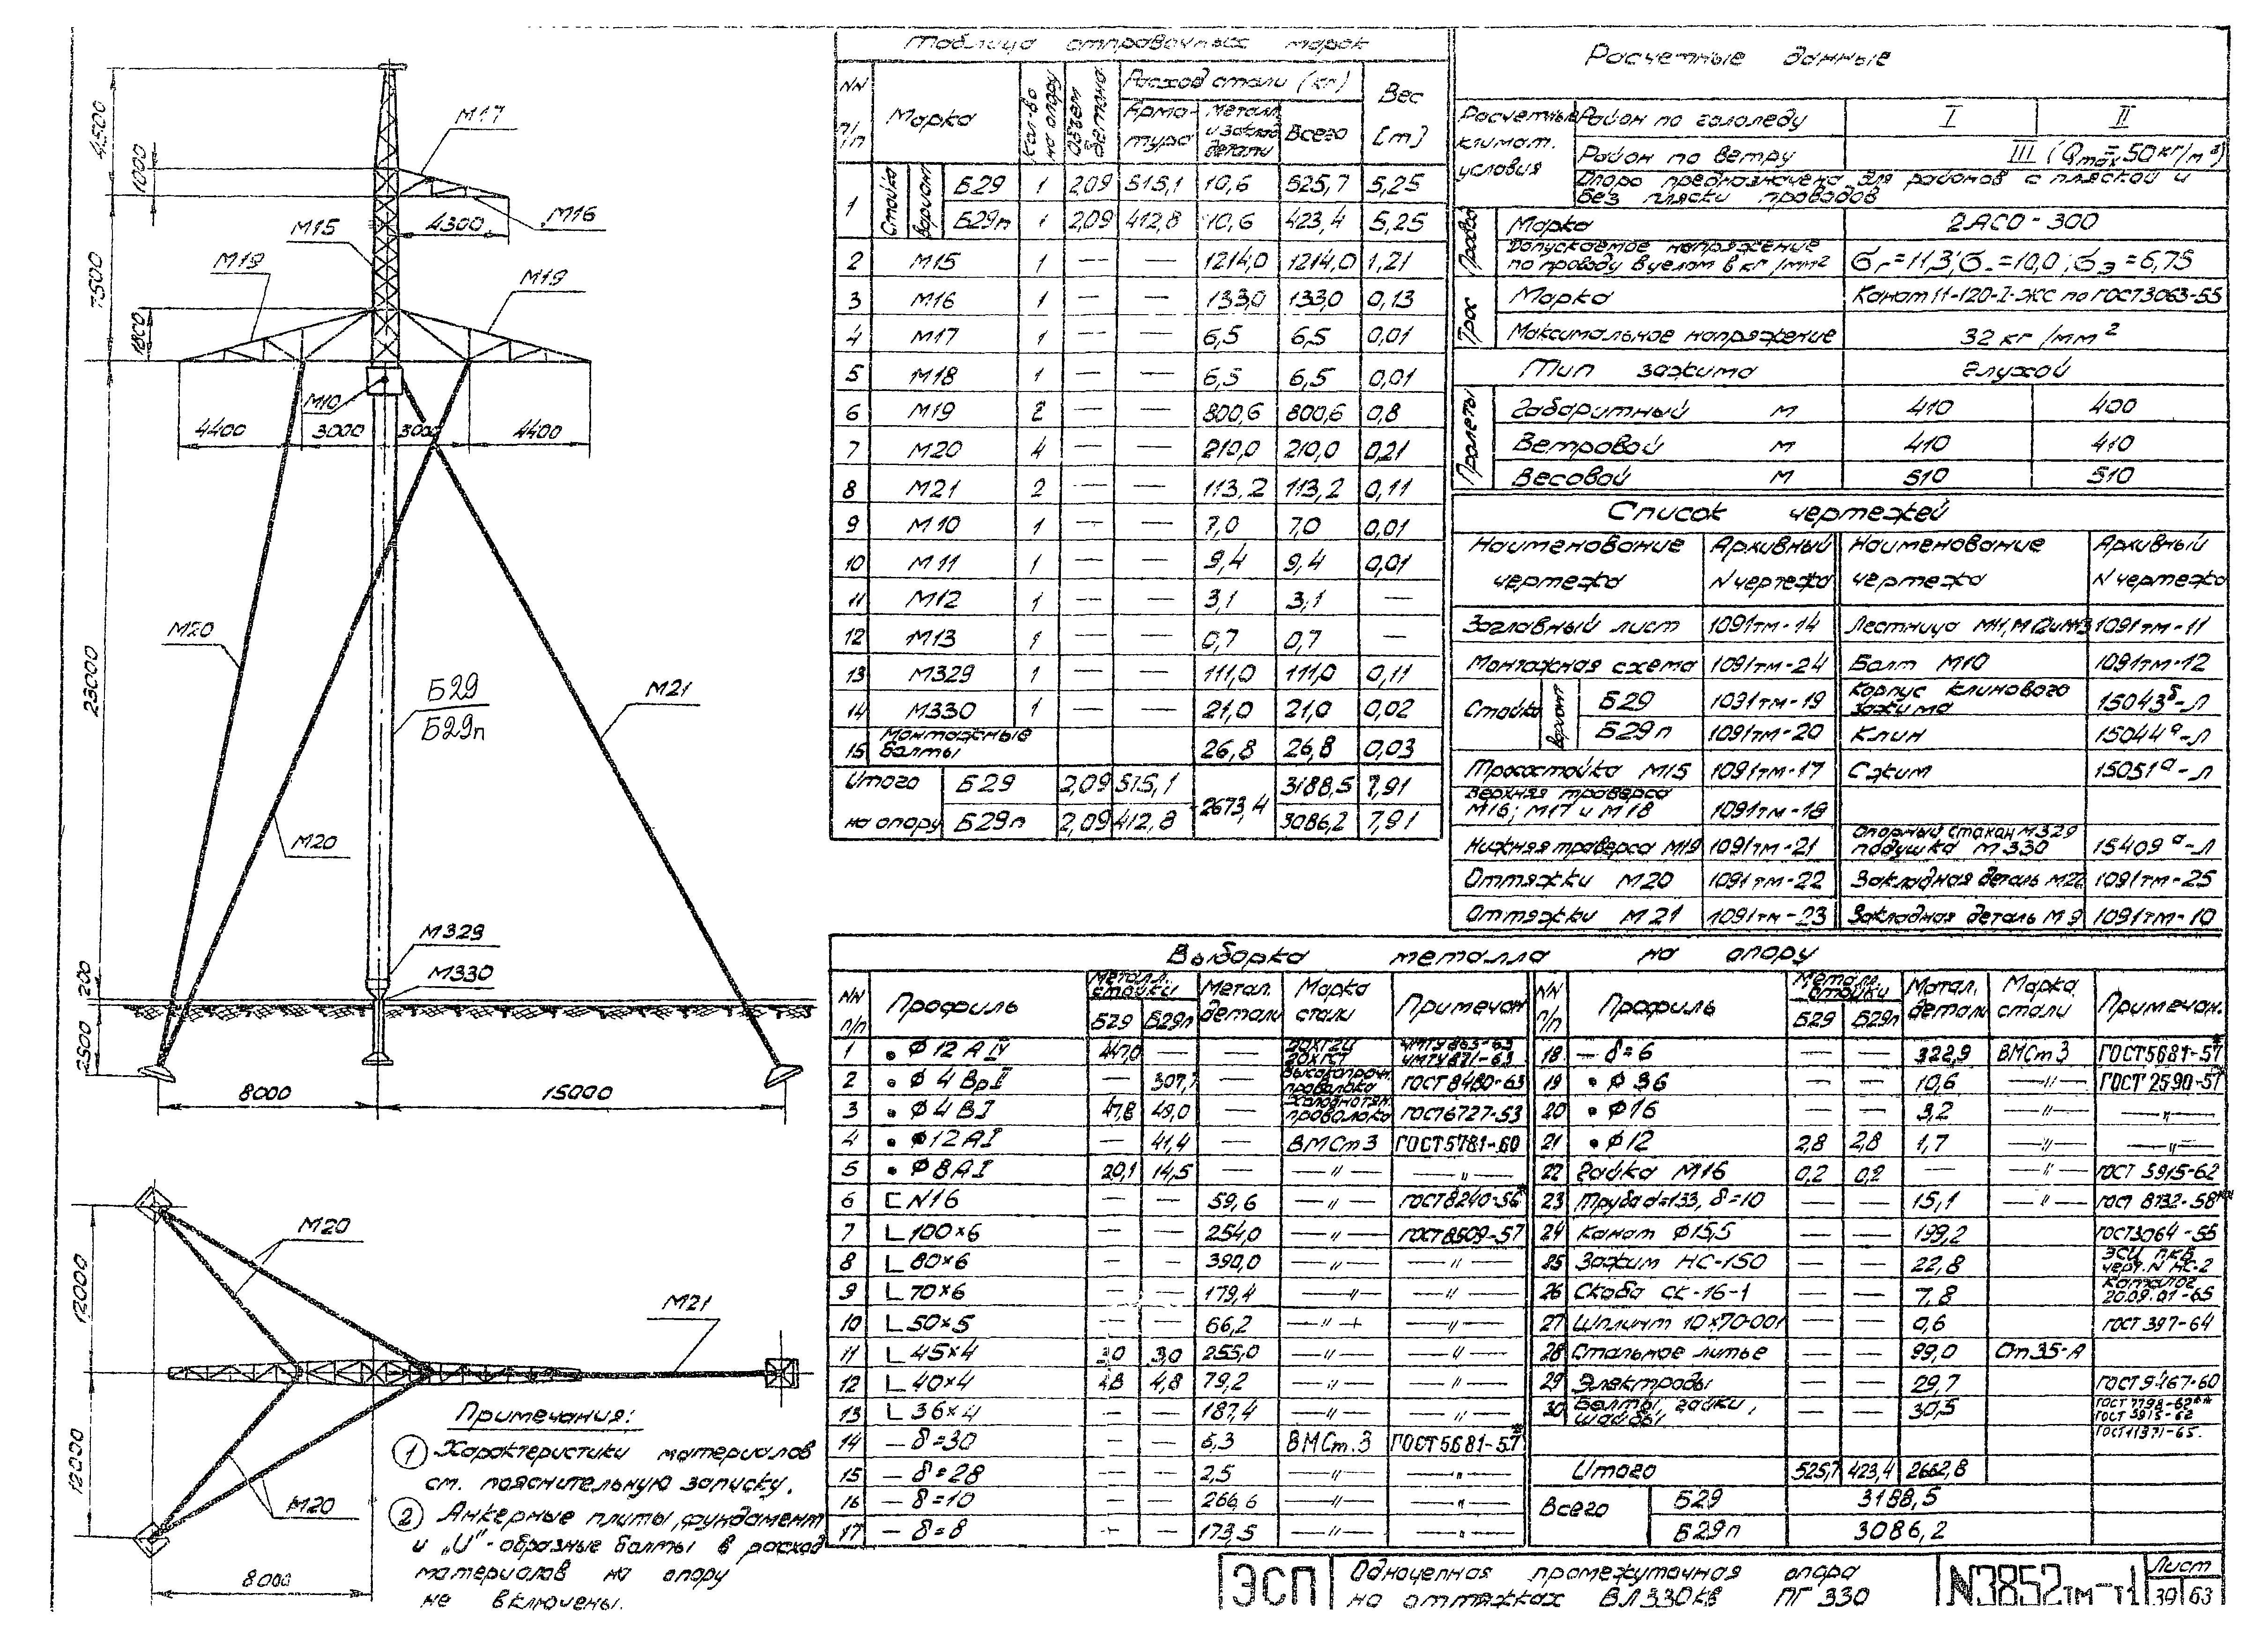 4500
1000
7500
1800
23000
200
2500
М17
М16
4300
М15
М19
М19
М10
4400
3000
3000
4400
М20
М21
Б29
Б29п
М20
М329
М330
8000
15000
12000
12000
М20
М21
М20
8000
Примечания:
1 Характеристики материалов
см. пояснительную записку.
2 Анкерные плиты, фундамент
и „U"-образные болты в расход
материалов на опору
не включены.
Таблица отправочных марок
NN п/п | Марка | Кол-во на опору | Объем бетона | Расход стали (кг) | Вес [т]
Арматура | Металл. и заклад. детали | Всего
1 | Стойка | вариант | Б29 | 1 | 2,09 | 515,1 | 10,6 | 525,7 | 5,25
Б29п | 1 | 2,09 | 412,8 | 10,6 | 423,4 | 5,25
2 | М15 | 1 | — | — | 1214,0 | 1214,0 | 1,21
3 | М16 | 1 | — | — | 133,0 | 133,0 | 0,13
4 | М17 | 1 | — | — | 6,5 | 6,5 | 0,01
5 | М18 | 1 | — | — | 6,5 | 6,5 | 0,01
6 | М19 | 2 | — | — | 800,6 | 800,6 | 0,8
7 | М20 | 4 | — | — | 210,0 | 210,0 | 0,21
8 | М21 | 2 | — | — | 113,2 | 113,2 | 0,11
9 | М10 | 1 | — | — | 7,0 | 7,0 | 0,01
10 | М11 | 1 | — | — | 9,4 | 9,4 | 0,01
11 | М12 | 1 | — | — | 3,1 | 3,1 | —
12 | М13 | 1 | — | — | 0,7 | 0,7 | —
13 | М329 | 1 | — | — | 111,0 | 111,0 | 0,11
14 | М330 | 1 | — | — | 21,0 | 21,0 | 0,02
15 | Монтажные болты | 26,8 | 26,8 | 0,03
Итого | Б29 | 2,09 | 515,1 | 2673,4 | 3188,5 | 7,91
на опору | Б29п | 2,09 | 412,8 | 3086,2 | 7,91
Расчетные данные
Расчетные климат. условия | Район по гололеду | I | II
Район по ветру | III (Qmax = 50 кг/м²)
Опора предназначена для районов с пляской и
без пляски проводов
Провод | Марка | 2АСО-300
Допускаемое напряжение
по проводу в целом в кг/мм² | σг=11,3; σ-=10,0; σэ=6,75
Трос | Марка | Канат 11-120-I-ЖС по ГОСТ3063-55
Максимальное напряжение | 32 кг/мм²
Тип зажима | глухой
Пролеты | Габаритный м | 410 | 400
Ветровой м | 410 | 410
Весовой м | 510 | 510
Список чертежей
Наименование чертежа | Архивный N чертежа | Наименование чертежа | Архивный N чертежа
Заглавный лист | 1091тм-14 | Лестница М11, М12 и М13 | 1091тм-11
Монтажная схема | 1091тм-24 | Болт М10 | 1091тм-12
Стойка | вариант | Б29 | 1091тм-19 | Корпус клинового зажима | 15043б-Л
Б29п | 1091тм-20 | Клин | 15044а-Л
Тросостойка М15 | 1091тм-17 | Сжим | 15051а-Л
Верхняя траверса М16; М17 и М18 | 1091тм-18
Нижняя траверса М19 | 1091тм-21 | Опорный стакан М329 подушка М330 | 15409а-Л
Оттяжки М20 | 1091тм-22 | Закладная деталь М22 | 1091тм-25
Оттяжки М21 | 1091тм-23 | Закладная деталь М9 | 1091тм-10
Выборка металла на опору
NN п/п | Профиль | Металл. стойки | Метал. детали | Марка стали | Примечан. | NN п/п | Профиль | Металл. стойки | Метал. детали | Марка стали | Примечан.
Б29 | Б29п | Б29 | Б29п
1 | • ϕ12АIV | 447,0 | — | — | 20ХГ2Ц 20ХГСТ | ЧМТУ863-63 ЧМТУ871-63 | 18 | — δ=6 | — | — | 322,9 | ВМСт3 | ГОСТ5681-57*
2 | • ϕ4ВрII | — | 307,7 | — | Высокопрочн. проволока | ГОСТ8480-63 | 19 | • ϕ36 | — | — | 10,6 | —"— | ГОСТ2590-57*
3 | • ϕ4ВI | 47,8 | 49,0 | — | Холоднотян. проволока | ГОСТ6727-53 | 20 | • ϕ16 | — | — | 3,2 | —"— | —"—
4 | • ϕ12АI | — | 41,4 | — | ВМСт3 | ГОСТ5781-60 | 21 | • ϕ12 | 2,8 | 2,8 | 1,7 | —"— | —"—
5 | • ϕ8АI | 20,1 | 14,5 | — | —"— | —"— | 22 | Гайка М16 | 0,2 | 0,2 | — | —"— | ГОСТ 5915-62
6 | [ N16 | — | — | 59,6 | —"— | ГОСТ8240-56* | 23 | Труба d=133, δ=10 | — | — | 15,1 | —"— | ГОСТ 8732-58**
7 | L 100×6 | — | — | 254,0 | —"— | ГОСТ8509-57 | 24 | Канат ϕ15,5 | — | — | 199,2 | ГОСТ3064-55
8 | L 80×6 | — | — | 390,0 | —"— | —"— | 25 | Зажим НС-150 | — | — | 22,8 | ЭСЦ ПКБ черт. N НС-2
9 | L 70×6 | — | — | 179,4 | —"— | —"— | 26 | Скоба СК-16-1 | — | — | 7,8 | Каталог 20.09.01-65
10 | L 50×5 | — | — | 66,2 | —"— | —"— | 27 | Шплинт 10×70-001 | — | — | 0,6 | ГОСТ 397-64
11 | L 45×4 | 3,0 | 3,0 | 255,0 | —"— | —"— | 28 | Стальное литье | — | — | 99,0 | Ст35-Л
12 | L 40×4 | 4,8 | 4,8 | 79,2 | —"— | —"— | 29 | Электроды | — | — | 29,7 | ГОСТ9467-60
13 | L 36×4 | — | — | 187,4 | —"— | —"— | 30 | Болты, гайки, шайбы | — | — | 30,5 | ГОСТ 7798-62** ГОСТ 5915-62
ГОСТ11371-65.
14 | — δ=30 | — | — | 5,3 | ВМСт.3 | ГОСТ5681-57*
15 | — δ=28 | — | — | 2,5 | —"— | —"— | Итого | 525,7 | 423,4 | 2662,8
16 | — δ=10 | — | — | 266,6 | —"— | —"— | Всего | Б29 | 3188,5
17 | — δ=8 | — | — | 173,5 | —"— | —"— | Б29п | 3086,2
ЭСП | Одноцепная промежуточная опора
на оттяжках ВЛ330кв ПГ330
N3852тм-т1 | Лист
39 | 63